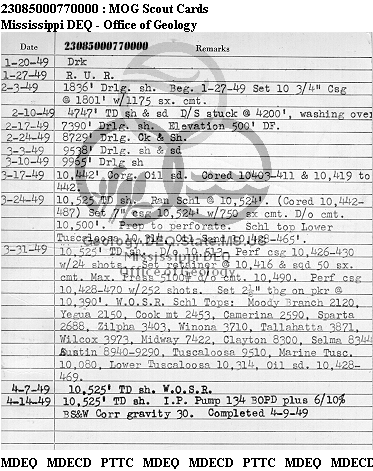 23085000770000 : MOG Scout Cards
Mississippi DEQ - Office of Geology
Date 23085000770000 Remarks
1-20-49 Drk
1-27-49 R. U. R.
2-3-49 1836' Drlg. sh. Beg. 1-27-49 Set 10 3/4" Csg
@ 1801' w/1175 sx. cmt.
2-10-49 4747' TD sh & sd D/S stuck @ 4200', washing over
2-17-49 7390' Drlg. sh. Elevation 500' DF.
2-24-49 8729' Drlg. Ck & Sh.
3-3-49 9538' Drlg. sh & sd
3-10-49 9965' Drlg sh
3-17-49 10,442' Corg. Oil sd. Cored 10403-411 & 10,419 to
442.
3-24-49 10,525 TD sh. Ran Schl @ 10,524'. (Cored 10,442-
487) Set 7" csg 10,524' w/750 sx cmt. D/o cmt.
10,500'. Prep to perforate. Schl top Lower
Tuscaloosa 10,314, Oil Sand 10,428-465'.
3-31-49 10,525' TD sh. Perf csg 10,426-430
w/24 shots. Set retainer @ 10,416 & sqd 50 sx.
cmt. Max. Press 5100# d/o cmt. 10,490. Perf csg
10,428-470 w/252 shots. Set 2½" tbg on pkr @
10,390'. W.O.S.R. Schl Tops: Moody Branch 2120,
Yegua 2150, Cook mt 2453, Camerina 2590, Sparta
2688, Zilpha 3403, Winona 3710, Tallahatta 3871,
Wilcox 3973, Midway 7422, Clayton 8300, Selma 8344
Austin 8940-9290, Tuscaloosa 9510, Marine Tusc.
10,080, Lower Tuscaloosa 10,314, Oil sd. 10,428-
469.
4-7-49 10,525' TD sh. W.O.S.R.
4-14-49 10,525' TD sh. I.P. Pump 134 BOPD plus 6/10%
BS&W Corr gravity 30. Completed 4-9-49
Mississippi DEQ
Office of Geology
MDEQ MDECD PTTC MDEQ MDECD PTTC MDEQ MDECD